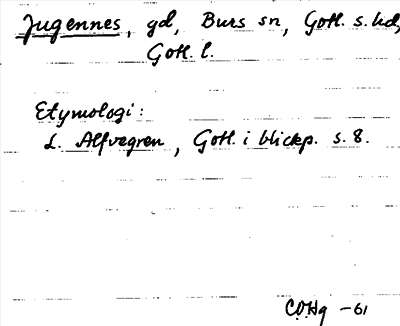 Jugennes, gd, Burs sn, Gotl. s. hd,
Gotl. l.
Etymologi:
L. Alfvegren, Gotl. i blickp. s. 8.
COHg -61